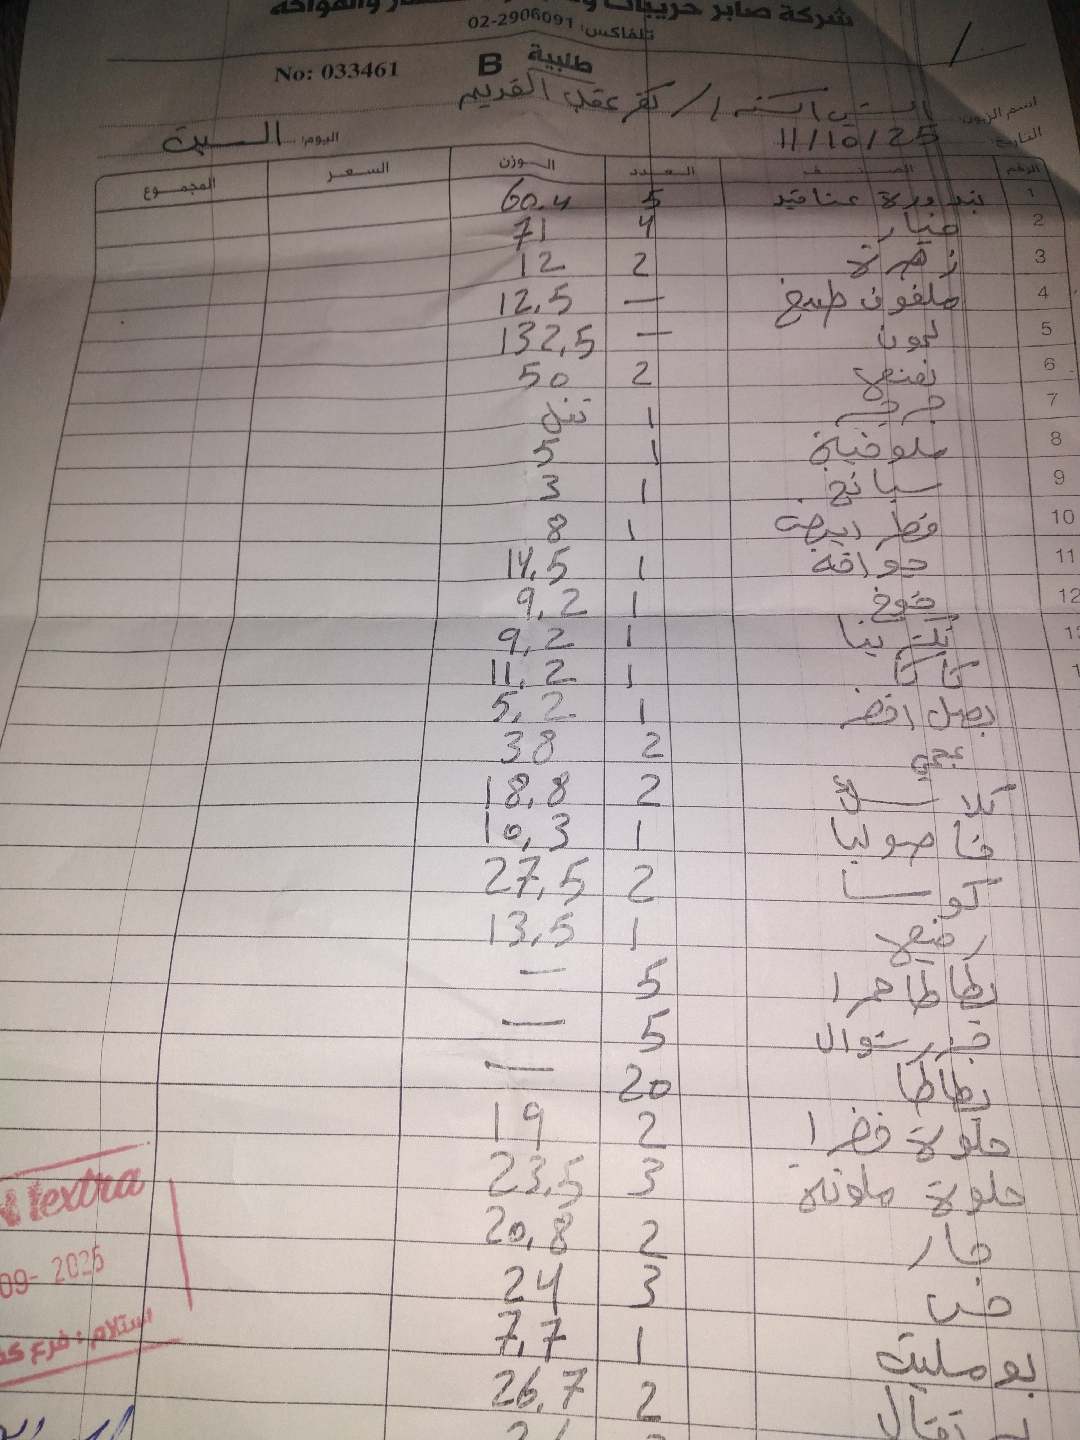 شركة صابر حريبات والفواكه
تلفاكس: 02-2906091
طلبية B No: 033461
اسم الزبون: كفر عقب القديم
التاريخ: 11/10/25 اليوم: السبت
الرقم الصنف العدد الوزن السعر المجموع
1 بندورة عناقيد 5 60.4
2 خيار 4 71
3 زهرة 2 12
4 ملفوف طبيخ — 12.5
5 ليمون — 132.5
6 نعنع 2 50
7 جرجير 1
8 ملوخية 1 5
9 سبانخ 1 3
10 فطر ابيض 1 8
11 جوافة 1 14.5
12 خوخ 1 9.2
نكترينا 1 9.2
كاكا 1 11.2
بصل اخضر 1 5.2
عجمي 2 38
كلاسي 2 18.8
فاصوليا 1 10,3
كوسا 2 27,5
رفيع 1 13,5
بطاطا حمرا 5 —
جزر شوال 5 —
بطاطا 20 —
حلوة خضرا 2 19
حلوة ملونة 3 23,5
حار 2 20,8
خس 3 24
بوملية 1 7,7
برتقال 2 26,7
extra
09- 2025
استلام : فرع